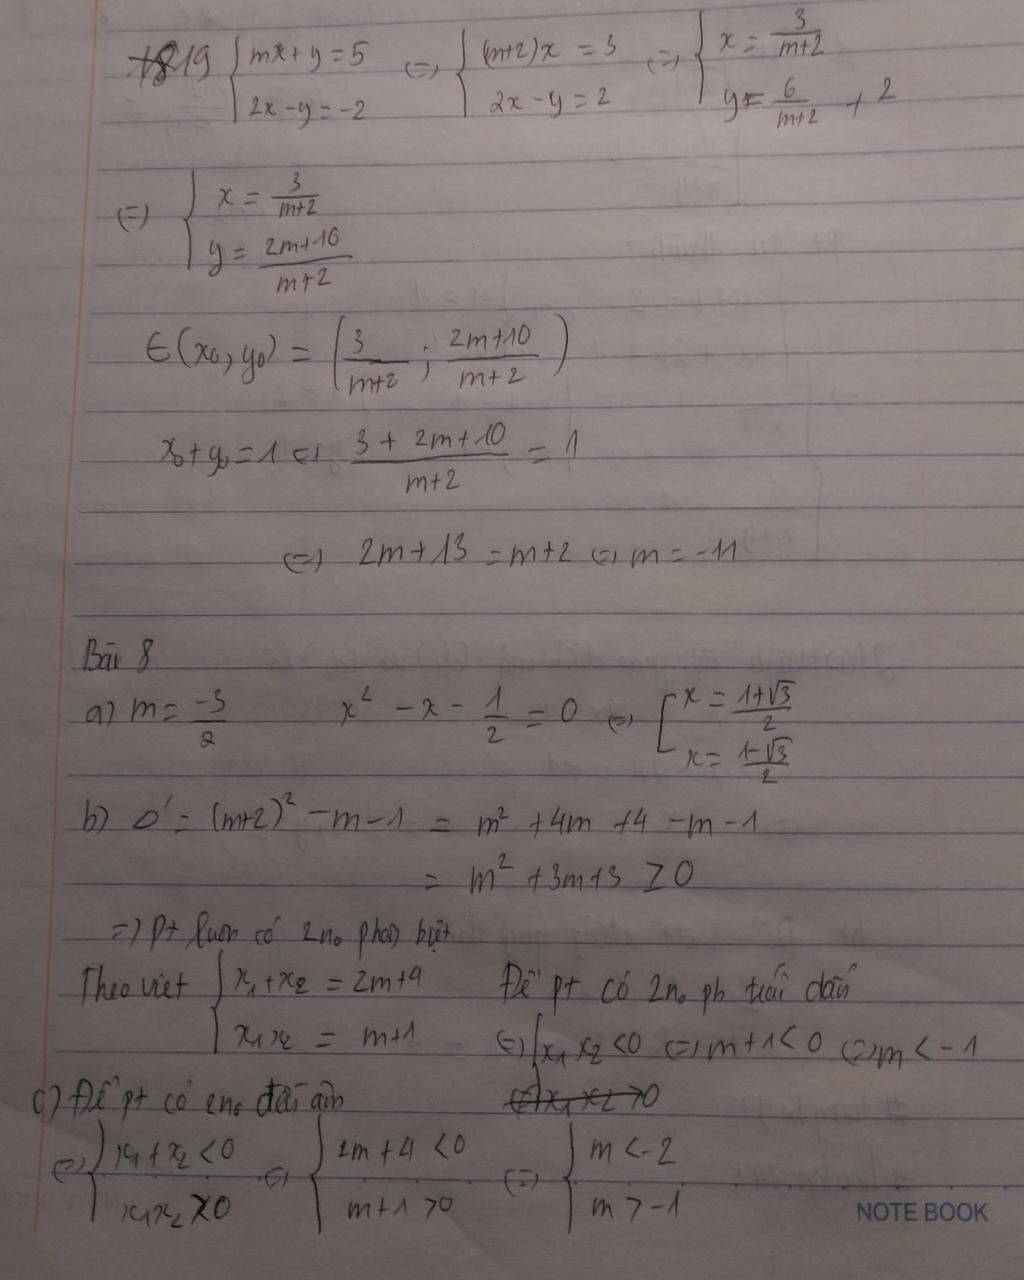 19 { mx + y = 5 ⇔ { (m+2)x = 3 ⇔ { x = 3/(m+2)
2x - y = -2 2x - y = 2 y = 6/(m+2) + 2
⇔ { x = 3/(m+2)
y = (2m+10)/(m+2)
∈ (x₀, y₀) = ( 3/(m+2) ; (2m+10)/(m+2) )
x₀ + y₀ = 1 ⇔ (3 + 2m + 10)/(m+2) = 1
⇔ 2m + 13 = m + 2 ⇔ m = -11
Bài 8
a) m = -3/2 x² - x - 1/2 = 0 ⇔ [ x = (1+√3)/2
x = (1-√3)/2
b) Δ' = (m+2)² - m - 1 = m² + 4m + 4 - m - 1
= m² + 3m + 3 ≥ 0
⇒ Pt luôn có 2 no phân biệt
Theo viet { x₁ + x₂ = 2m + 4 Để pt có 2 no pb trái dấu
x₁x₂ = m + 1 ⇔ { x₁x₂ < 0 ⇔ m + 1 < 0 ⇔ m < -1
c) Để pt có 2 no đều âm
⇔ { x₁ + x₂ < 0 ⇔ { 2m + 4 < 0 ⇔ { m < -2
x₁x₂ > 0 m + 1 > 0 m > -1
NOTE BOOK